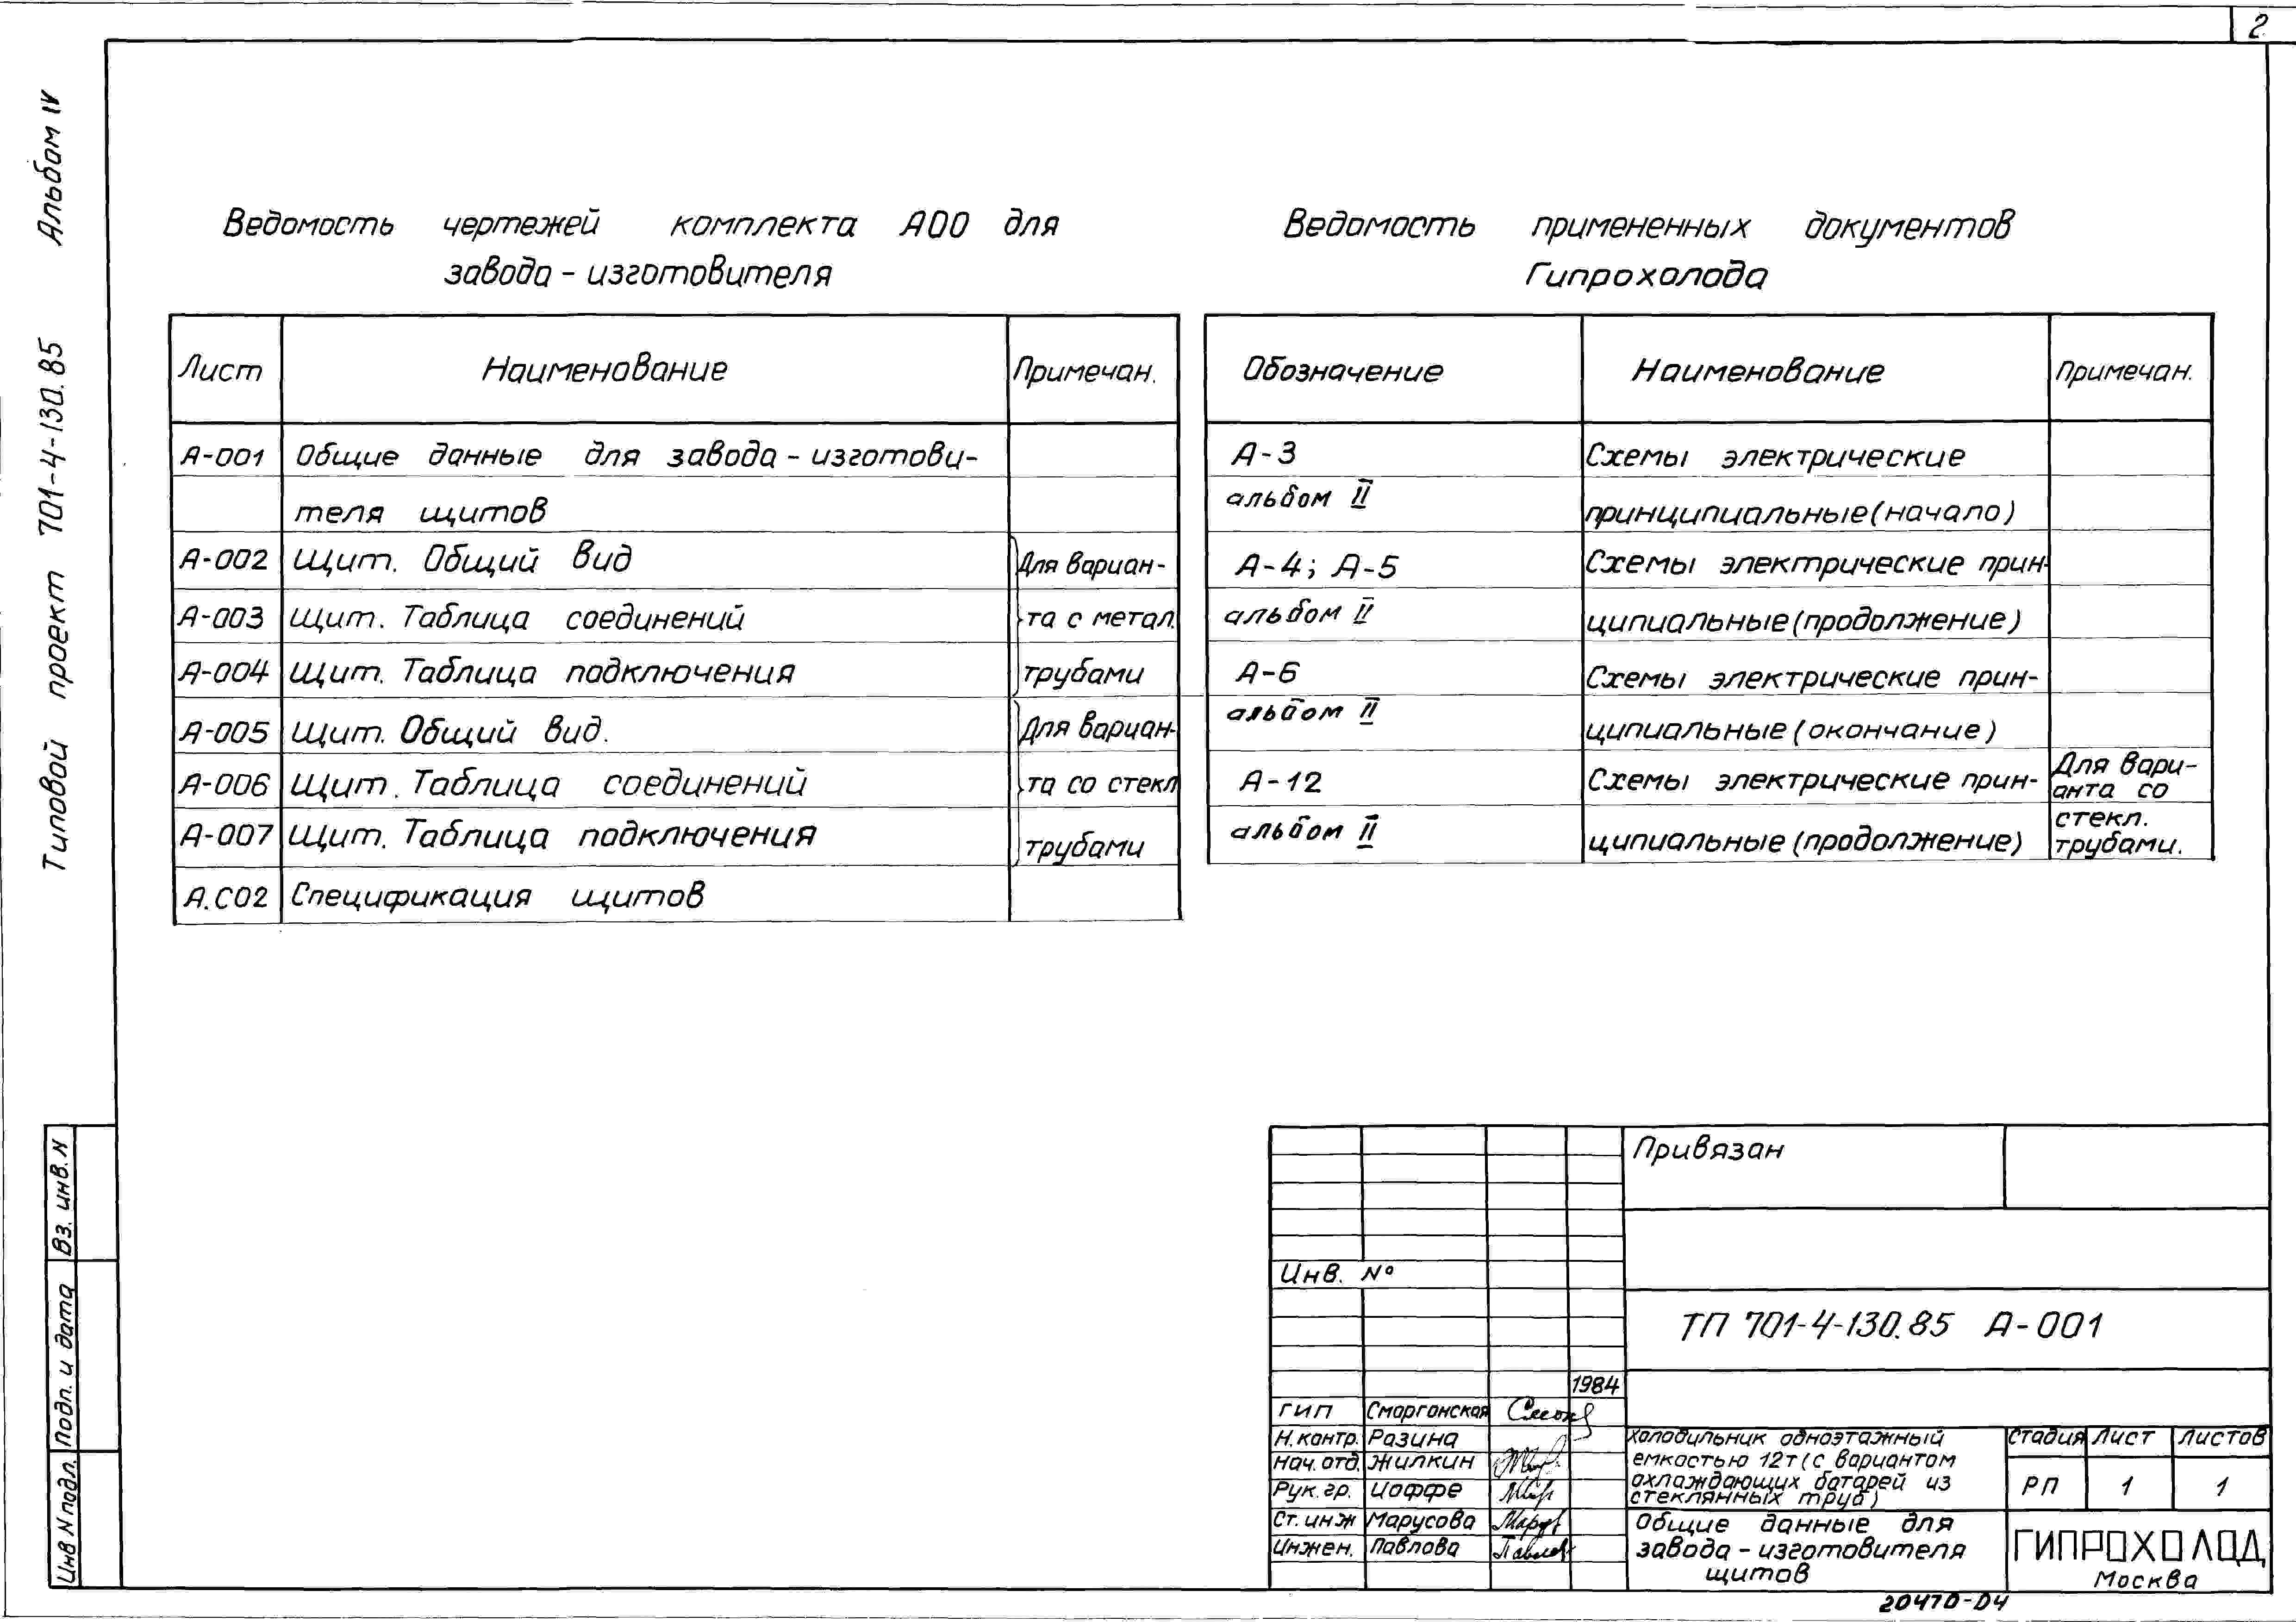 2
Альбом IV
Типовой проект 701-4-130.85
Ведомость чертежей комплекта А00 для
завода-изготовителя
Лист Наименование Примечан.
А-001 Общие данные для завода-изготови-
теля щитов
А-002 Щит. Общий вид Для вариан-
А-003 Щит. Таблица соединений та с метал.
А-004 Щит. Таблица подключения трубами
А-005 Щит. Общий вид. Для вариан-
А-006 Щит. Таблица соединений та со стекл
А-007 Щит. Таблица подключения трубами
А.С02 Спецификация щитов
Ведомость примененных документов
Гипрохолода
Обозначение Наименование Примечан.
А-3 Схемы электрические
альбом II принципиальные (начало)
А-4; А-5 Схемы электрические прин-
альбом II ципиальные (продолжение)
А-6 Схемы электрические прин-
альбом II ципиальные (окончание)
А-12 Схемы электрические прин- Для вари-
анта со
альбом II ципиальные (продолжение) стекл.
трубами.
Вз. инв. N
Подп. и дата
Инв N подл.
Привязан
Инв. №
ТП 701-4-130.85 А-001
1984
ГИП Сморгонская
Н.контр. Разина
Нач. отд. Жилкин
Рук. гр. Иоффе
Ст. инж Марусова
Инжен. Павлова
Холодильник одноэтажный
емкостью 12т (с вариантом
охлаждающих батарей из
стеклянных труб)
Стадия Лист Листов
РП 1 1
Общие данные для
завода-изготовителя
щитов
ГИПРОХОЛОД
Москва
20470-04